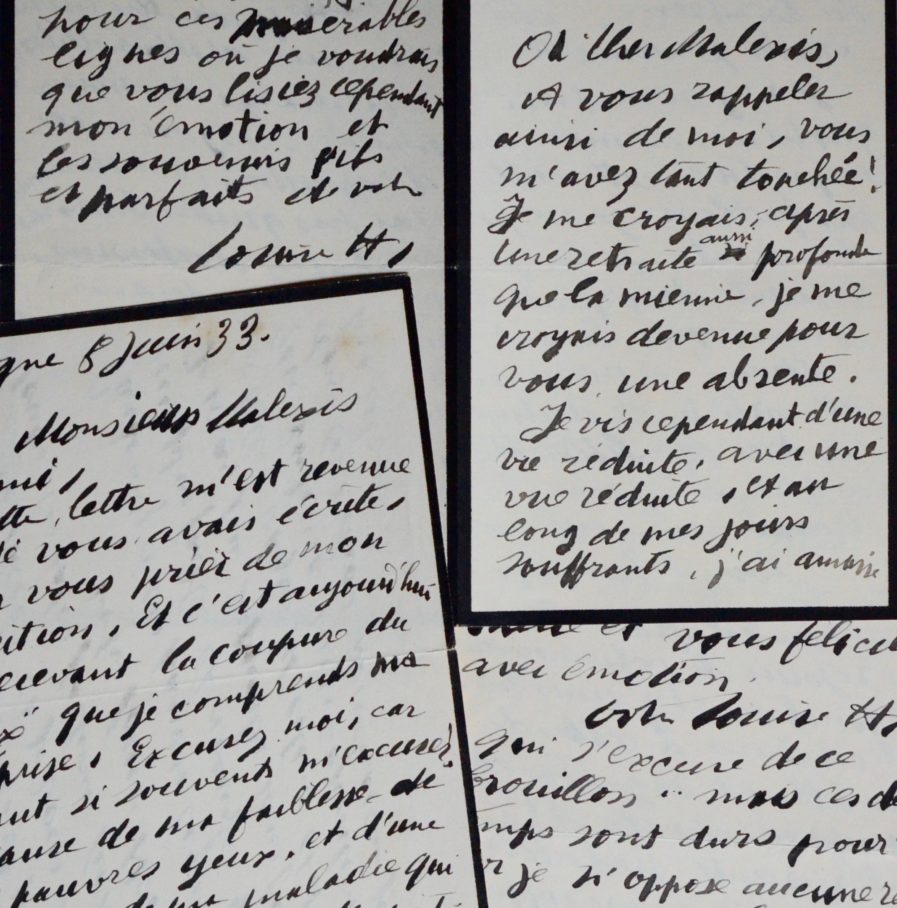 pour ces misérables
lignes où je voudrais
que vous lisiez cependant
mon émotion et
les souvenirs
et parfaits de votre
Louise H,
Oh cher Malexis,
A vous rappeler
ainsi de moi, vous
m'avez tant touchée!
Je me croyais, après
une retraite aussi profonde
que la mienne, je me
croyais devenue pour
vous, une absente.
Je vis cependant d'une
vie réduite, avec une
vue réduite, et au
long de mes jours
souffrants, j'ai
gne 8 Juin 33.
Monsieur Malexis
mi,
tte, lettre m'est revenue
je vous avais écrite,
vous prier de mon
ition, Et c'est aujourd'hui
ecevant la coupure du
x" que je comprends ma
prise, Excusez moi, car
ant si souvent m'excuser,
ause de ma faiblesse de
pauvres yeux, et d'une
de ma maladie qui
et vous félici
avec émotion.
votre Louise H,
qui s'excuse de ce
brouillon .. mais ces d
mps sont durs pour
r je n'oppose aucune r